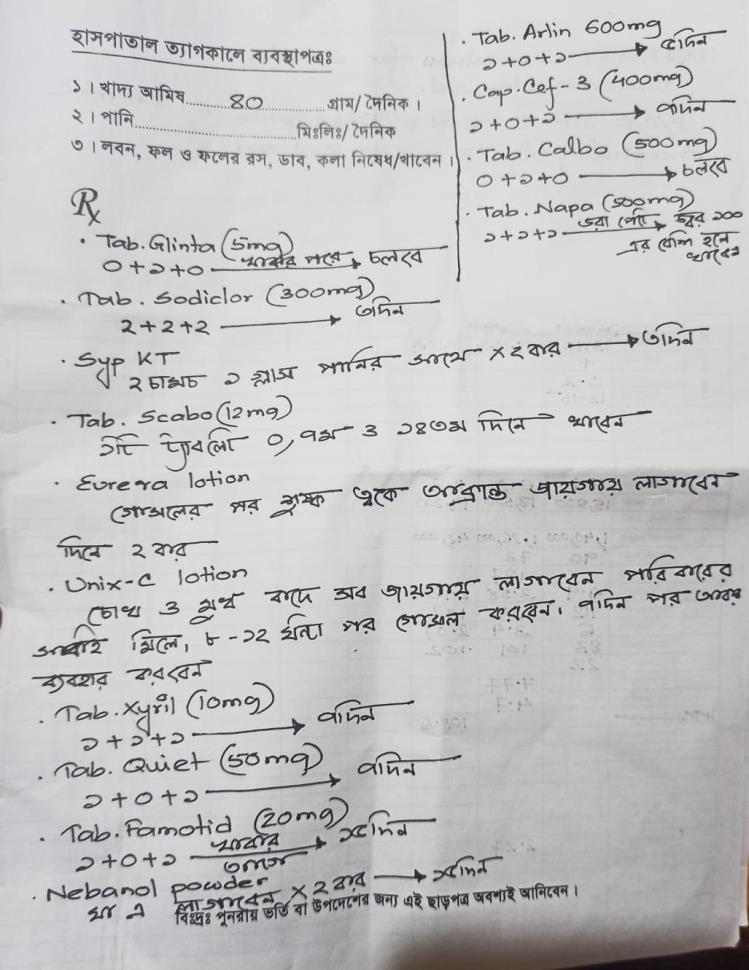 হাসপাতাল ত্যাগকালে ব্যবস্থাপত্রঃ
১। খাদ্য আমিষ.............80.............গ্রাম/ দৈনিক।
২। পানি.............................মিঃলিঃ/ দৈনিক
৩। লবন, ফল ও ফলের রস, ডাব, কলা নিষেধ/খাবেন।
Rx
· Tab. Glinta (5mg)
0+১+0 খাবার পরে → চলবে
· Tab. Sodiclor (300mg)
2+2+2 → ৩দিন
· Syp KT
২ চামচ ১ গ্লাস পানির সাথে × 2 বার → ৩দিন
· Tab. Scabo (12mg)
১টি 0, ৭ম ও ১৪তম দিনে খাবেন
· Eurera lotion
গোসলের পর শুষ্ক ত্বকে আক্রান্ত জায়গায় লাগাবেন
দিনে ২ বার
· Unix-C lotion
চোখ ও মুখ বাদে সব জায়গায় লাগাবেন পরিবারের
সবাই মিলে, ৮-১২ ঘন্টা পর গোসল করবেন। ৭দিন পর আবার
ব্যবহার করবেন
· Tab. Xyril (10mg)
১+১+১ → ৭দিন
· Tab. Quiet (50mg)
১+0+১ → ৭দিন
· Tab. Famotid (20mg)
১+0+১ খাবার আগে → ১৫দিন
· Nebanol powder
ঘা এ লাগাবেন × 2 বার → ১৫দিন
বিঃদ্রঃ পুনরায় ভর্তি বা উপদেশের জন্য এই ছাড়পত্র অবশ্যই আনিবেন।
· Tab. Arlin 600mg
১+0+১ → ৫দিন
· Cap. Cef-3 (400mg)
১+0+১ → ৭দিন
· Tab. Calbo (500mg)
0+১+0 → চলবে
· Tab. Napa (500mg)
১+১+১ ভরা পেটে → জ্বর ১00
এর বেশি হলে
খাবেন